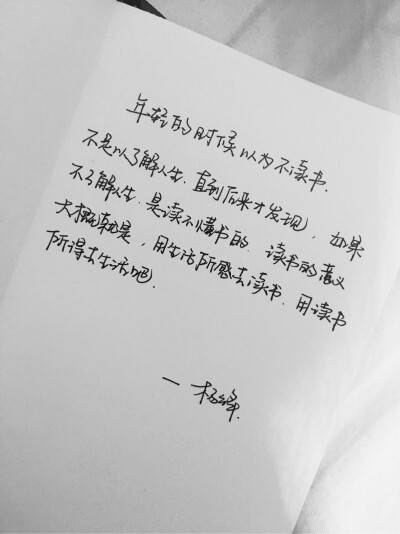 年轻的时候以为不读书.
不足以了解人生.直到后来才发现,如果
不了解人生.是读不懂书的.读书的意义
大概就是,用生活所感去读书.用读书
所得去生活吧.
一杨绛.